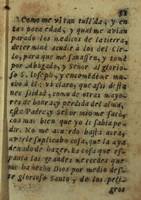 Como me vi tan tullida, y en
tan poca edad, y qual me avian
parado los medicos de la tierra,
determiné acudir à los del Cie-
lo, para que me sanassen, y tomé
por Abogado, y Señor al glorio-
so S. Joseph, y encomendéme mu-
cho à él: vi claro, que assi de es-
ta necessidad, como de otras mayo-
res de honra, y perdida del alma,
este Padre, y Señor mio me sacó
con mas bien, que yo le sabia pe-
dir. No me acuerdo hasta aora,
averle suplicado cosa, que la aya
dexado de hazer. Es cosa que es-
panta las grandes mercedes que
me ha hecho Dios por medio des-
te glorioso Santo, de los peli-
gros